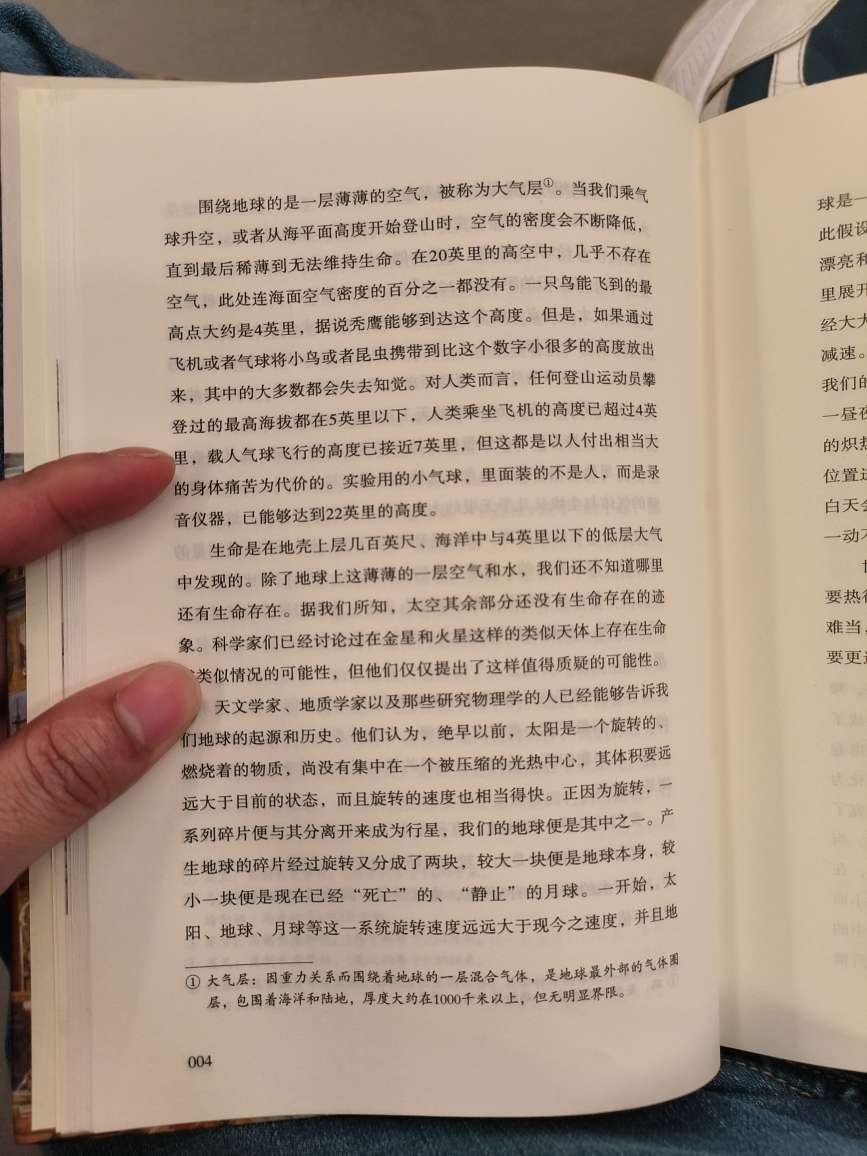 围绕地球的是一层薄薄的空气，被称为大气层①。当我们乘气
球升空，或者从海平面高度开始登山时，空气的密度会不断降低，
直到最后稀薄到无法维持生命。在20英里的高空中，几乎不存在
空气，此处连海面空气密度的百分之一都没有。一只鸟能飞到的最
高点大约是4英里，据说秃鹰能够到达这个高度。但是，如果通过
飞机或者气球将小鸟或者昆虫携带到比这个数字小很多的高度放出
来，其中的大多数都会失去知觉。对人类而言，任何登山运动员攀
登过的最高海拔都在5英里以下，人类乘坐飞机的高度已超过4英
里，载人气球飞行的高度已接近7英里，但这都是以人付出相当大
的身体痛苦为代价的。实验用的小气球，里面装的不是人，而是录
音仪器，已能够达到22英里的高度。
生命是在地壳上层几百英尺、海洋中与4英里以下的低层大气
中发现的。除了地球上这薄薄的一层空气和水，我们还不知道哪里
还有生命存在。据我们所知，太空其余部分还没有生命存在的迹
象。科学家们已经讨论过在金星和火星这样的类似天体上存在生命
类似情况的可能性，但他们仅仅提出了这样值得质疑的可能性。
天文学家、地质学家以及那些研究物理学的人已经能够告诉我
们地球的起源和历史。他们认为，绝早以前，太阳是一个旋转的、
燃烧着的物质，尚没有集中在一个被压缩的光热中心，其体积要远
远大于目前的状态，而且旋转的速度也相当得快。正因为旋转，一
系列碎片便与其分离开来成为行星，我们的地球便是其中之一。产
生地球的碎片经过旋转又分成了两块，较大一块便是地球本身，较
小一块便是现在已经“死亡”的、“静止”的月球。一开始，太
阳、地球、月球等这一系统旋转速度远远大于现今之速度，并且地
① 大气层：因重力关系而围绕着地球的一层混合气体，是地球最外部的气体圈
层，包围着海洋和陆地，厚度大约在1000千米以上，但无明显界限。
004
球是一
此假设
漂亮和
里展开
经大大
减速。
我们的
一昼夜
的炽热
位置运
白天会
一动不
要热得
难当，
要更远